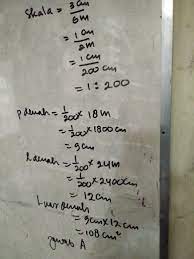 Skala = 3 cm / 6 m
= 1 cm / 2 m
= 1 cm / 200 cm
= 1 : 200
p denah = 1/200 x 18 m
= 1/200 x 1800 cm
= 9 cm
l denah = 1/200 x 24 m
= 1/200 x 2400 cm
= 12 cm
Luas denah
= 9 cm x 12 cm
= 108 cm²
jawab A